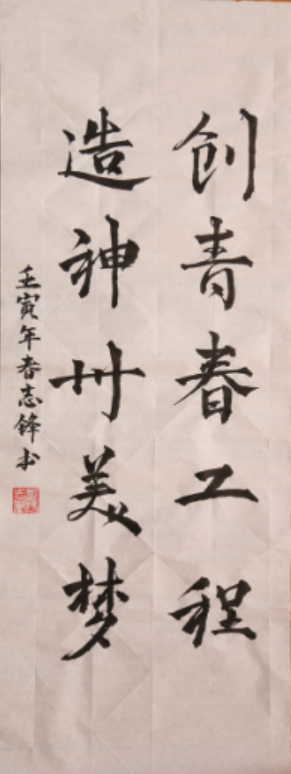 创青春工程
造神州美梦
壬寅年春志锋书